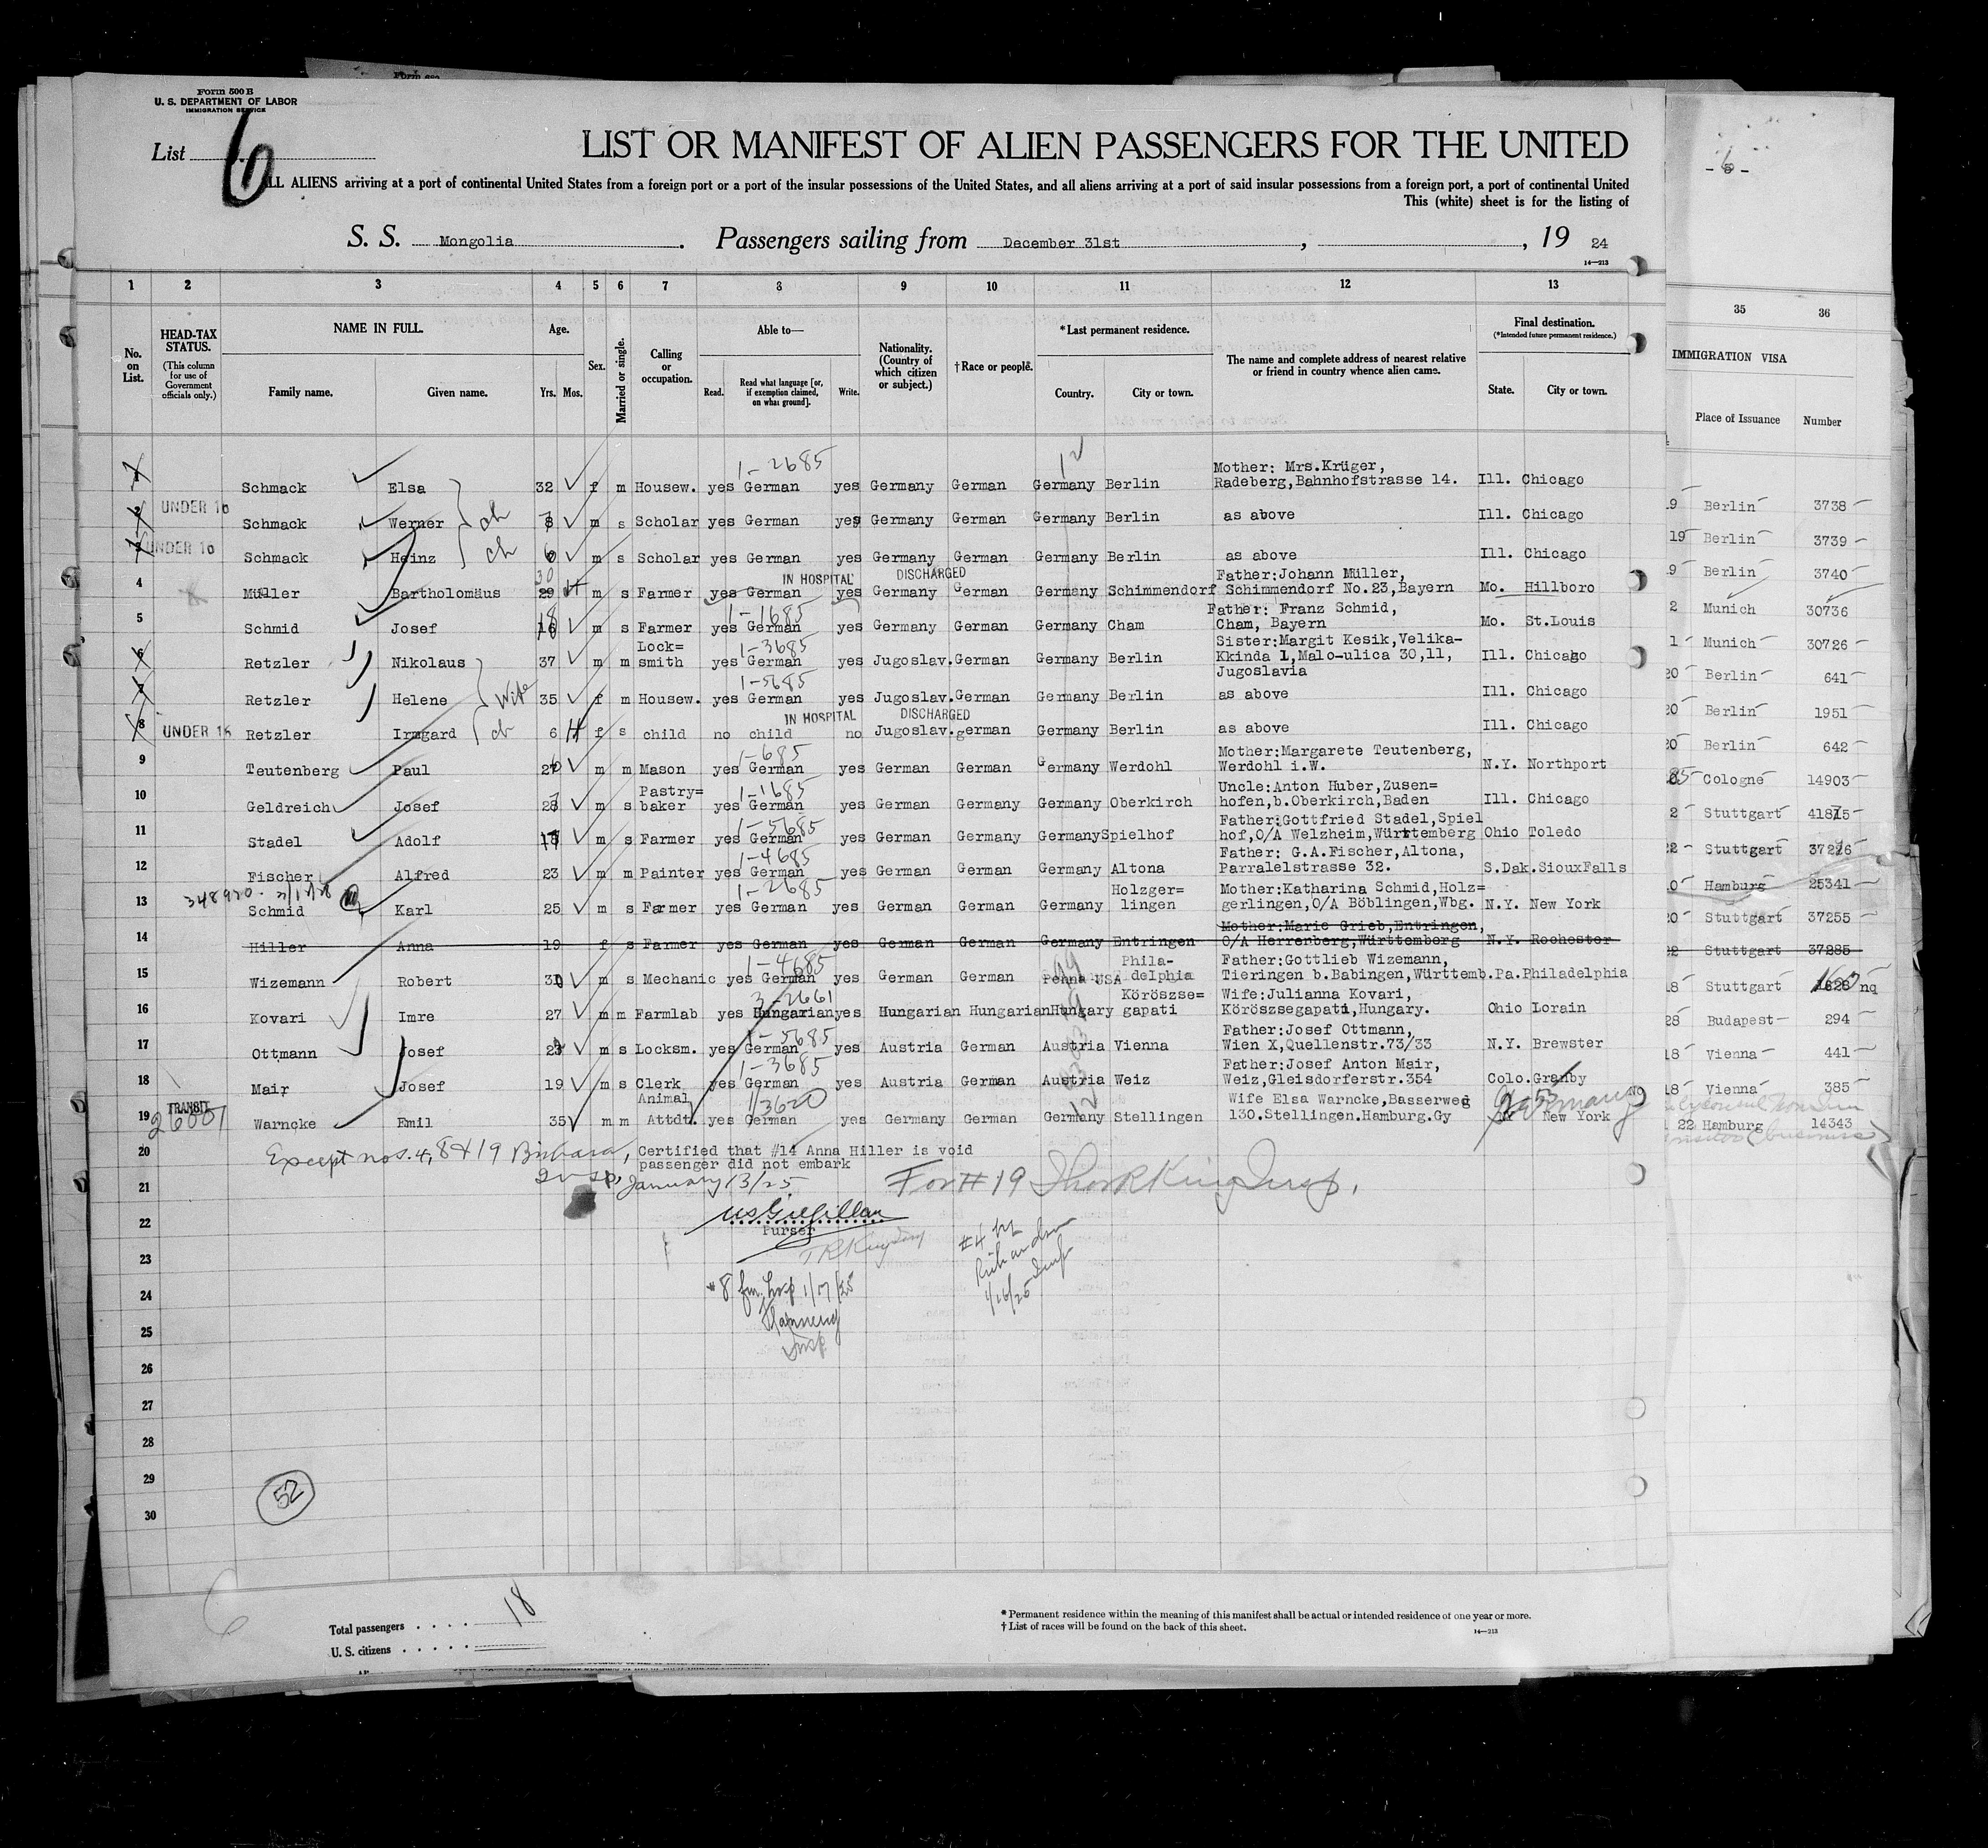 Form 500 B
U. S. DEPARTMENT OF LABOR
IMMIGRATION SERVICE
List 6
LIST OR MANIFEST OF ALIEN PASSENGERS FOR THE UNITED
ALL ALIENS arriving at a port of continental United States from a foreign port or a port of the insular possessions of the United States, and all aliens arriving at a port of said insular possessions from a foreign port, a port of continental United
This (white) sheet is for the listing of
S. S. Mongolia. Passengers sailing from December 31st, , 19 24
14—213
1 2 3 4 5 6 7 8 9 10 11 12 13 35 36
No. on List.
HEAD-TAX STATUS.
(This column for use of Government officials only.)
NAME IN FULL.
Family name. Given name.
Age.
Yrs. Mos.
Sex.
Married or single.
Calling or occupation.
Able to—
Read. Read what language [or, if exemption claimed, on what ground]. Write.
Nationality. (Country of which citizen or subject.)
†Race or people.
*Last permanent residence.
Country. City or town.
The name and complete address of nearest relative or friend in country whence alien came.
Final destination.
(*Intended future permanent residence.)
State. City or town.
IMMIGRATION VISA
Place of Issuance Number
1-2685 12
1 Schmack Elsa 32 f m Housew. yes German yes Germany German Germany Berlin Mother: Mrs.Krüger, Radeberg,Bahnhofstrasse 14. Ill. Chicago 19 Berlin 3738
2 UNDER 16 Schmack Werner ch m s Scholar yes German yes Germany German Germany Berlin as above Ill. Chicago 19 Berlin 3739
3 UNDER 16 Schmack Heinz ch 6 m s Scholar yes German yes Germany German Germany Berlin as above Ill. Chicago 19 Berlin 3740
IN HOSPITAL DISCHARGED
4 Müller Bartholomäus 30 29 m s Farmer yes German yes Germany German Germany Schimmendorf Father:Johann Müller, Schimmendorf No.23,Bayern Mo. Hillboro 2 Munich 30736
1-1685
5 Schmid Josef 18 16 m s Farmer yes German yes Germany German Germany Cham Father: Franz Schmid, Cham, Bayern Mo. St.Louis 1 Munich 30726
1-3685
6 Retzler Nikolaus 37 m m Lock= smith yes German yes Jugoslav. German Germany Berlin Sister:Margit Kesik,Velika- Kkinda 1,Malo-ulica 30,11, Jugoslavia Ill. Chicago 20 Berlin 641
1-5685
7 Retzler Helene Wife 35 f m Housew. yes German yes Jugoslav. German Germany Berlin as above Ill. Chicago 20 Berlin 1951
IN HOSPITAL DISCHARGED
8 UNDER 16 Retzler Irmgard ch 6 H f s child no child no Jugoslav. german Germany Berlin as above Ill. Chicago 20 Berlin 642
1-685
9 Teutenberg Paul m m Mason yes German yes German German Germany Werdohl Mother:Margarete Teutenberg, Werdohl i.W. N.Y. Northport 25 Cologne 14903
1-1685
10 Geldreich Josef 28 m s Pastry= baker yes German yes German Germany Germany Oberkirch Uncle:Anton Huber,Zusen= hofen,b.Oberkirch,Baden Ill. Chicago 2 Stuttgart
1-5685
11 Stadel Adolf m s Farmer yes German yes German Germany Germany Spielhof Father:Gottfried Stadel,Spiel hof,O/A Welzheim,Württemberg Ohio Toledo 22 Stuttgart
1-4685
12 Fischer Alfred 23 m m Painter yes German yes German German Germany Altona Father: G.A.Fischer,Altona, Parralelstrasse 32. S.Dak. SiouxFalls Hamburg 25341
348920 1-2685
13 Schmid Karl 25 m s Farmer yes German yes German German Germany Holzger= lingen Mother:Katharina Schmid,Holz= gerlingen,O/A Böblingen,Wbg. N.Y. New York 20 Stuttgart 37255
14 Hiller Anna 19 f s Farmer yes German yes German German Germany Entringen Mother:Marie Grieb,Entringen, O/A Herrenberg,Württemberg N.Y. Rochester 22 Stuttgart 37285
1-4685
15 Wizemann Robert m s Mechanic yes German yes German German Penna USA Phila- delphia Father:Gottlieb Wizemann, Tieringen b.Babingen,Württemb. Pa. Philadelphia 18 Stuttgart nq
3-2661
16 Kovari Imre 27 m m Farmlab yes Hungarian yes Hungarian Hungarian Hungary Köröszse= gapati Wife:Julianna Kovari, Köröszsegapati,Hungary. Ohio Lorain 28 Budapest 294
1-5685
17 Ottmann Josef m s Locksm. yes German yes Austria German Austria Vienna Father:Josef Ottmann, Wien X,Quellenstr.73/33 N.Y. Brewster 18 Vienna 441
1-3685
18 Mair Josef 19 m s Clerk yes German yes Austria German Austria Weiz Father:Josef Anton Mair, Weiz,Gleisdorferstr.354 Colo. Granby 18 Vienna 385
TRANSIT 3620 12 Germany
19 26001 Warncke Emil 35 m m Animal Attdt. yes German yes Germany German Germany Stellingen Wife Elsa Warncke,Basserweg 130.Stellingen.Hamburg.Gy New York 22 Hamburg 14343
20 Except nos. 4, 8 & 19 Certified that #14 Anna Hiller is void
passenger did not embark
21 January 13/25 For # 19 Insp.
22
Purser
23 T R King Insp
#4 by
1/16/25 Insp
24 #8 fm. hosp 1/17/25
25 Insp.
26
27
28
29
52
30
6
Total passengers . . . . 18
U. S. citizens . . . . .
* Permanent residence within the meaning of this manifest shall be actual or intended residence of one year or more.
† List of races will be found on the back of this sheet.
14—213